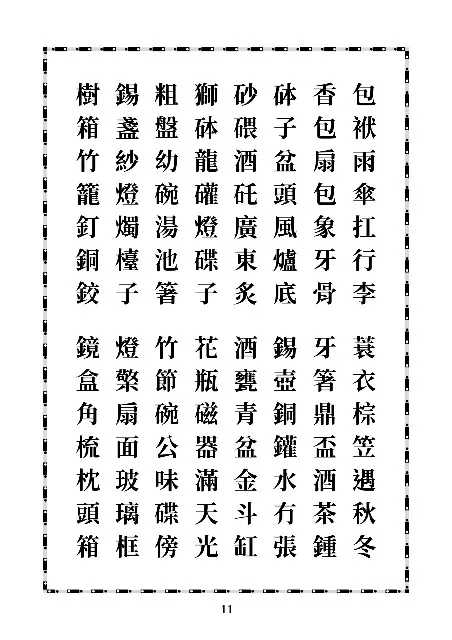 包袱雨傘扛行李 蓑衣棕笠遇秋冬
香包扇包象牙骨 牙箸鼎盃酒茶鍾
砵子盆頭風爐底 錫壺銅鑵水冇張
砂碨酒矺廣東炙 酒甕青盆金斗缸
獅砵龍礶燈碟子 花瓶磁器滿天光
粗盤幼碗湯池箸 竹節碗公味碟傍
錫盞紗燈燭檯子 燈檠扇面玻璃框
樹箱竹籠釘銅鉸 鏡盒角梳枕頭箱
11